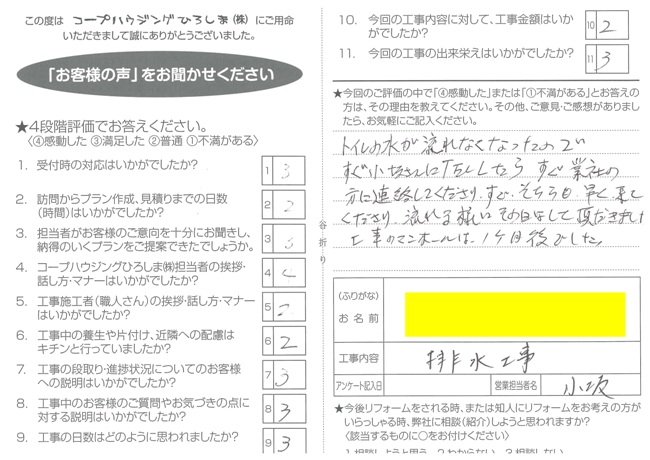 この度は コープハウジングひろしま(株) にご用命
いただきまして誠にありがとうございました。
「お客様の声」をお聞かせください
★4段階評価でお答えください。
〈④感動した ③満足した ②普通 ①不満がある〉
1. 受付時の対応はいかがでしたか?
1 3
2. 訪問からプラン作成、見積りまでの日数
(時間)はいかがでしたか?
2 2
3. 担当者がお客様のご意向を十分にお聞きし、
納得のいくプランをご提案できたでしょうか。
3 3
4. コープハウジングひろしま㈱担当者の挨拶・
話し方・マナーはいかがでしたか?
4 4
5. 工事施工者(職人さん)の挨拶・話し方・マナー
はいかがでしたか?
5 2
6. 工事中の養生や片付け、近隣への配慮は
キチンと行っていましたか?
6 2
7. 工事の段取り・進捗状況についてのお客様
への説明はいかがでしたか?
7 3
8. 工事中のお客様のご質問やお気づきの点に
対する説明はいかがでしたか?
8 3
9. 工事の日数はどのように思われましたか?
9 3
谷折り
10. 今回の工事内容に対して、工事金額はいか
がでしたか?
10 2
11. 今回の工事の出来栄えはいかがでしたか?
11 3
★今回のご評価の中で「④感動した」または「①不満がある」とお答えの
方は、その理由を教えてください。その他、ご意見・ご感想がありました
ら、お気軽にご記入ください。
トイレの水が流れなくなったので
すぐ小坂さんにTELしたら すぐ業社の
方に連絡してくださり、すぐ、そちらも 早く 来て
くださり 流れる様に その日にして 頂だきました
工事のマンホールは、1ケ月後でした。
(ふりがな)
お名前
工事内容 排水工事
アンケート記入日
営業担当者名 小坂
★今後リフォームをされる時、または知人にリフォームをお考えの方が
いらっしゃる時、弊社に相談(紹介)しようと思われますか?
〈該当するものに○をお付けください〉
1.相談しようと思う 2.わからない 3.相談しない